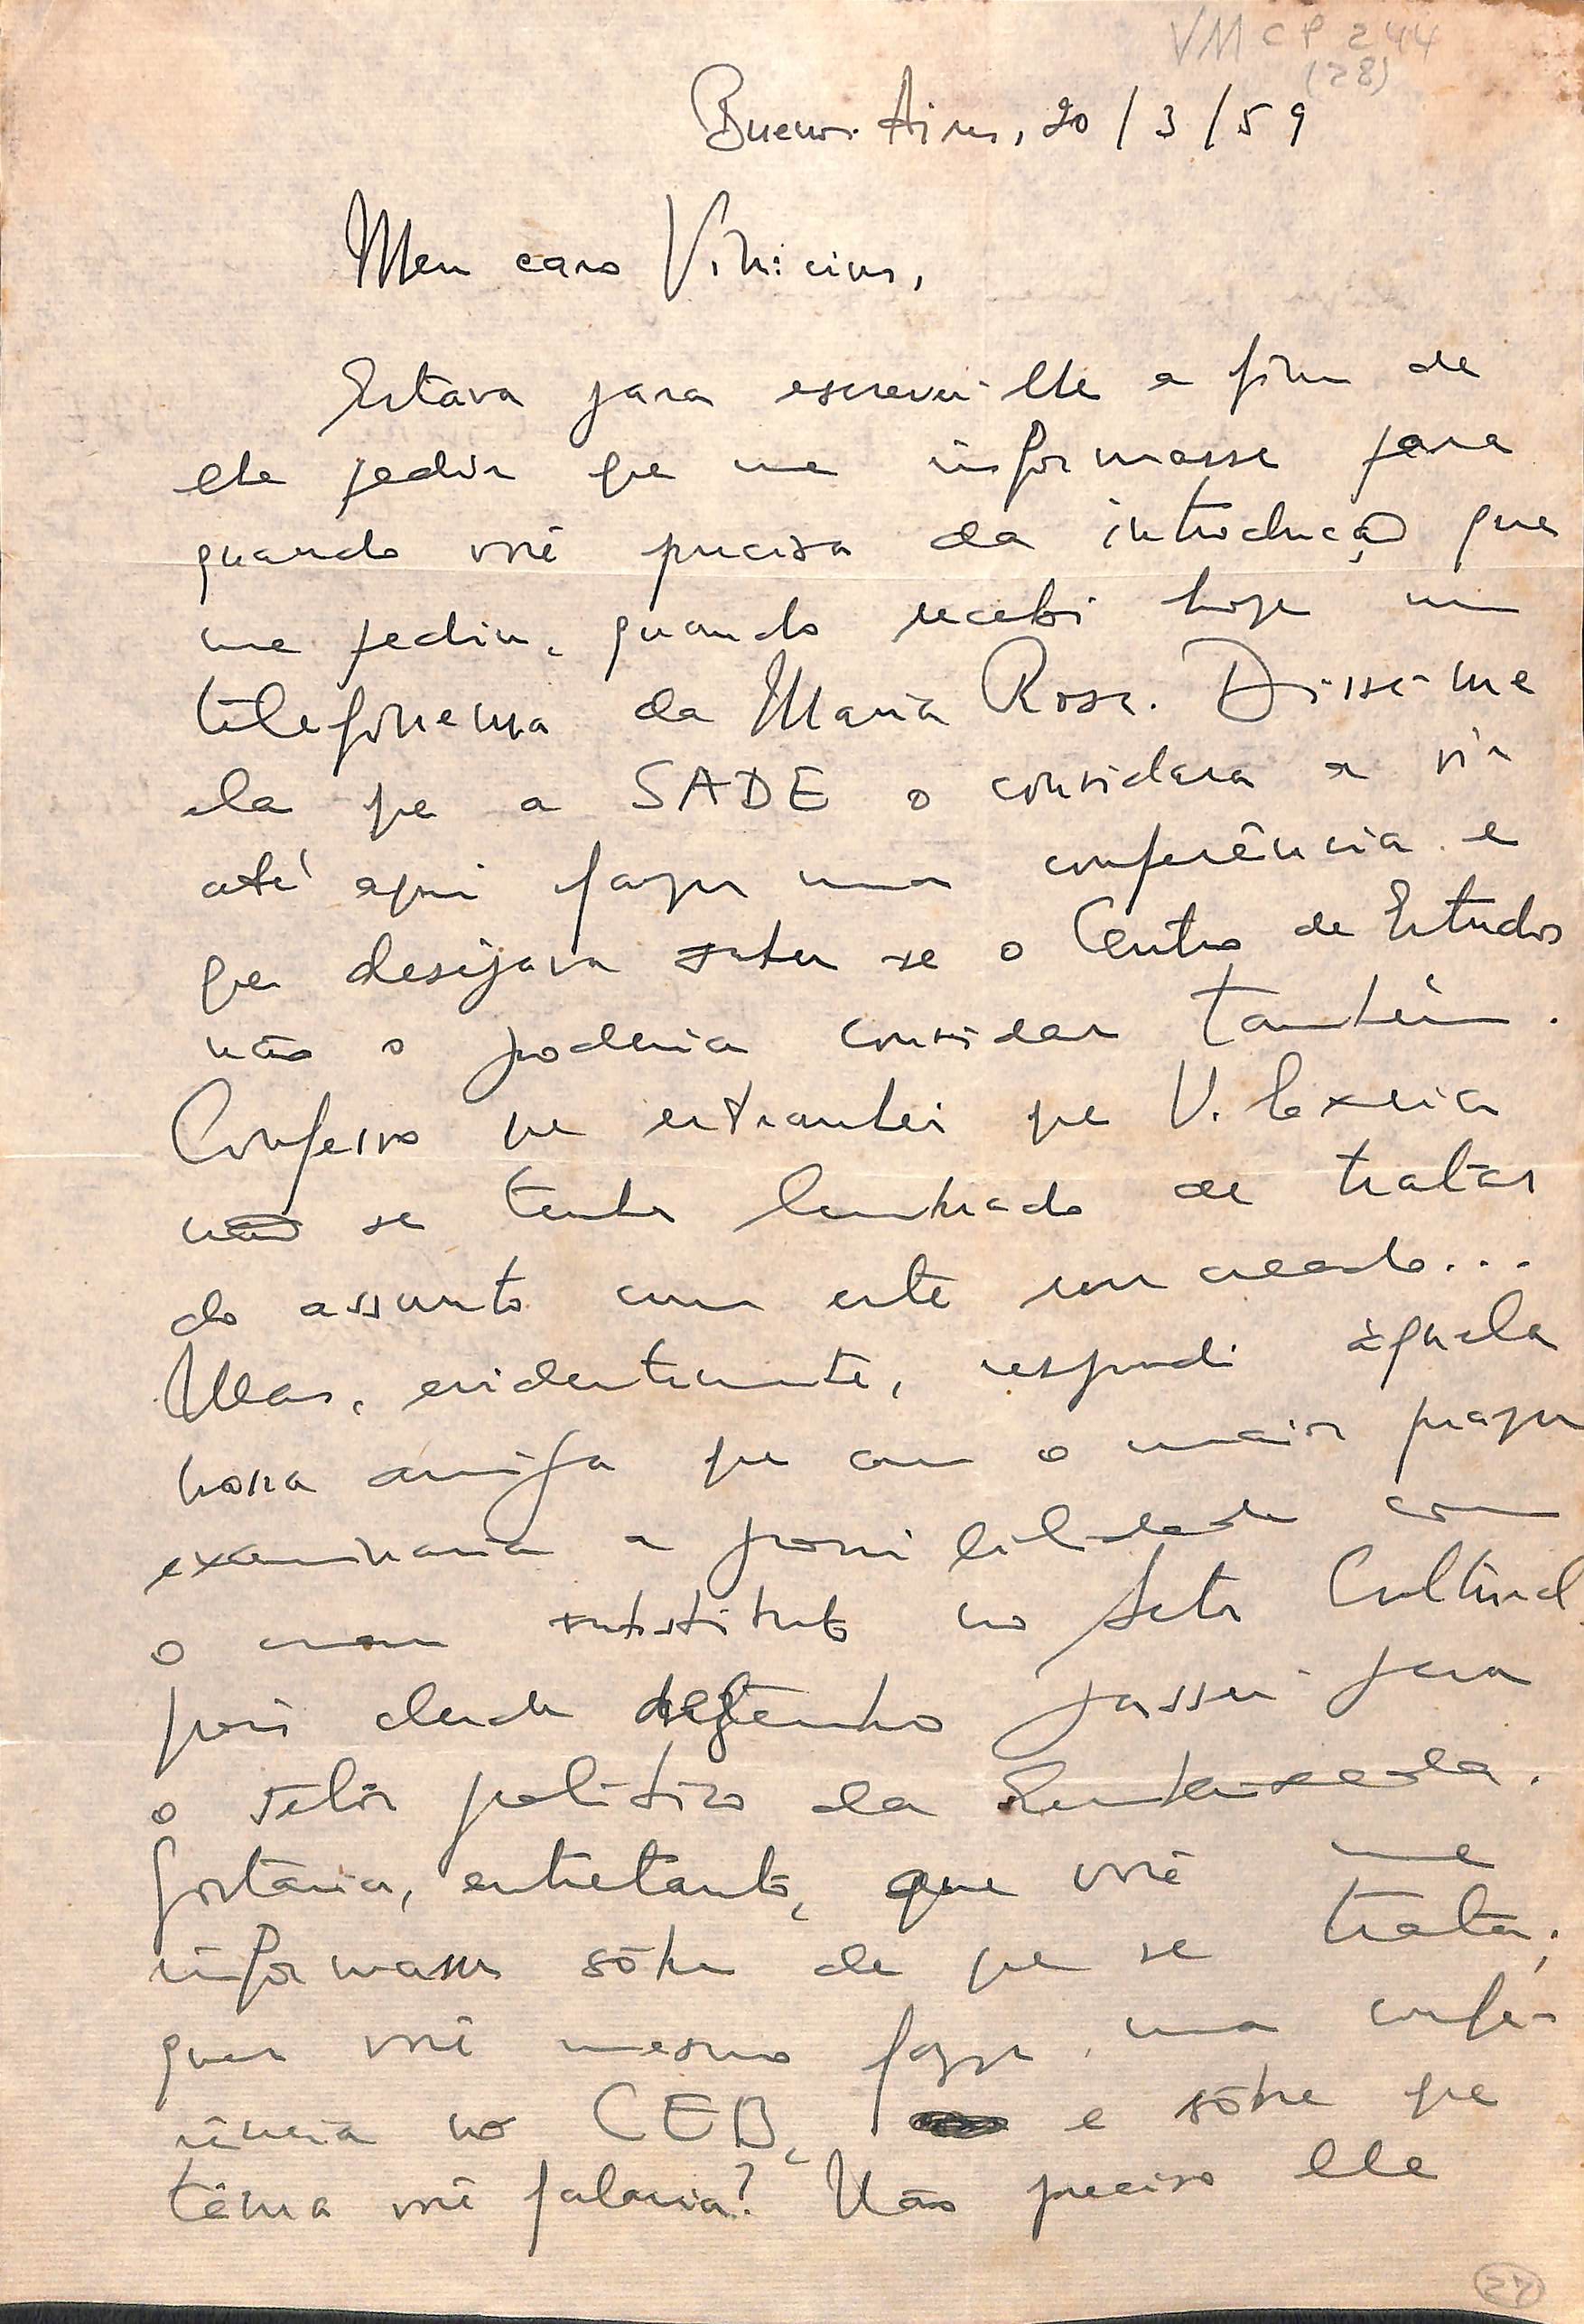 VMCP 244
(28)
Buenos Aires, 20/3/59
Meu caro Vinicius,
Estava para escrever-lhe a fim de
lhe pedir que me informasse para
quando você precisa da introdução que
me pediu, quando recebi hoje um
telefonema da Maria Rosa. Disse-me
ela que a SADE o convidara a vir
até aqui fazer uma conferência e
que desejava saber se o Centro de Estudos
não o poderia convidar também.
Confesso que estranhei que V. Excia
não se tenha lembrado de tratar
do assunto com este seu criado...
Mas, evidentemente, respondi àquela
nossa amiga que com o maior prazer
examinaria a possibilidade com
o meu substituto no Setor Cultural,
pois desde passei para
o setôr politico da Embaixada.
Gostaria, entretanto, que você me
informasse sôbre de que se trata;
quer você mesmo fazer uma confe-
rência no CEB, e sôbre que
têma você falaria? Não preciso lhe
27